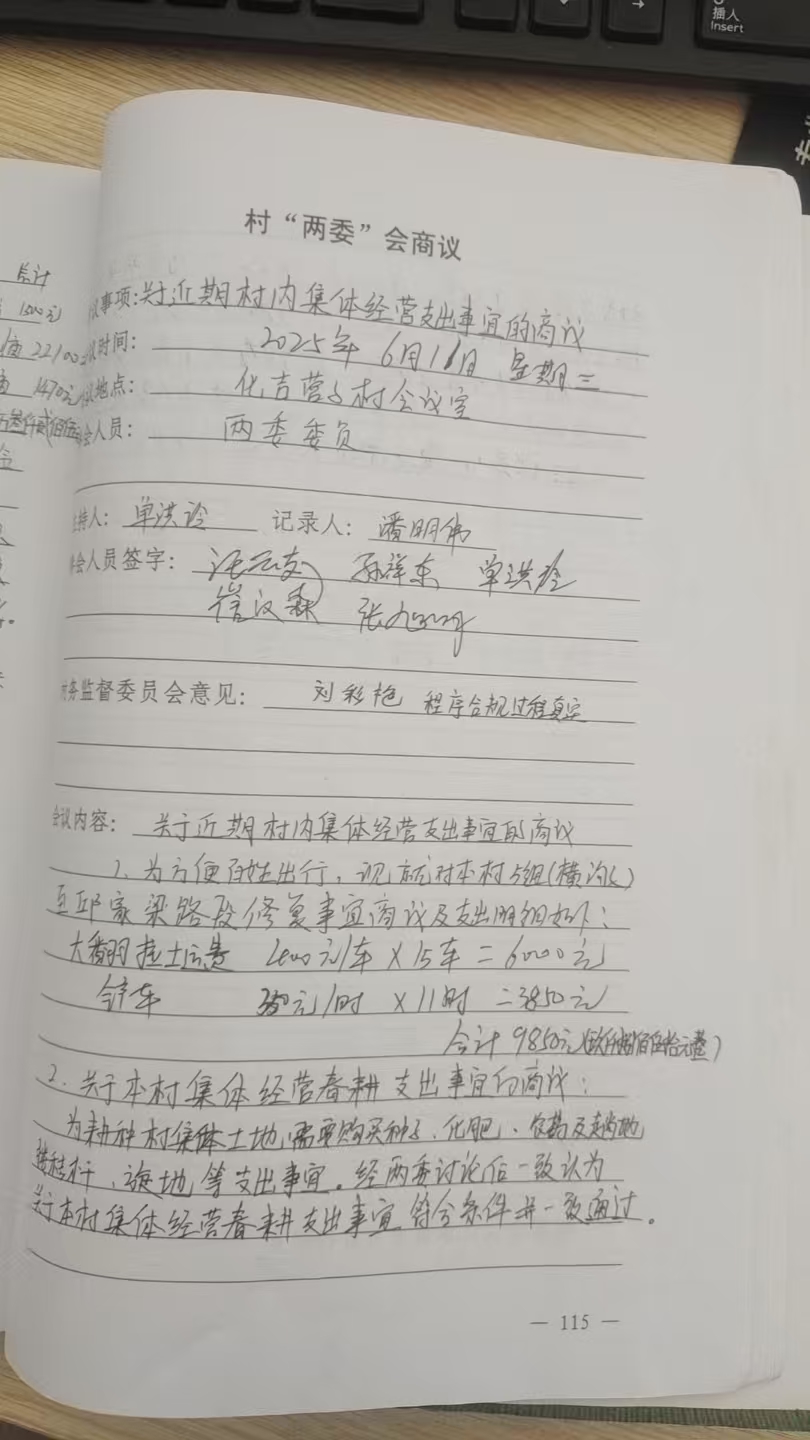 插入
Insert
总计
1500元
22100
1470元
村“两委”会商议
议事项:关于近期村内集体经营支出事宜的商议
议时间: 2025年 6月18日 星期三
议地点: 化吉营子村会议室
会人员: 两委委员
主持人: 单洪玲 记录人: 潘明伟
会人员签字: 孙祥东 单洪玲
崔汉森
务监督委员会意见: 刘彩艳 程序合规过程真实
会议内容: 关于近期村内集体经营支出事宜的商议
1. 为方便百姓出行,现就对本村5组(横沟)
至邱家梁路段修复事宜商议及支出明细如下:
大翻拉土运费 400元/车 × 15车 = 6000元
铲车 350元/时 × 11时 = 3850元
合计 9850元(玖仟捌佰伍拾元整)
2. 关于本村集体经营春耕支出事宜的商议:
为耕种村集体土地,需要购买种子、化肥、农药及
秸杆、旋地等支出事宜。经两委讨论后一致认为
关于本村集体经营春耕支出事宜符合条件并一致通过。
— 115 —